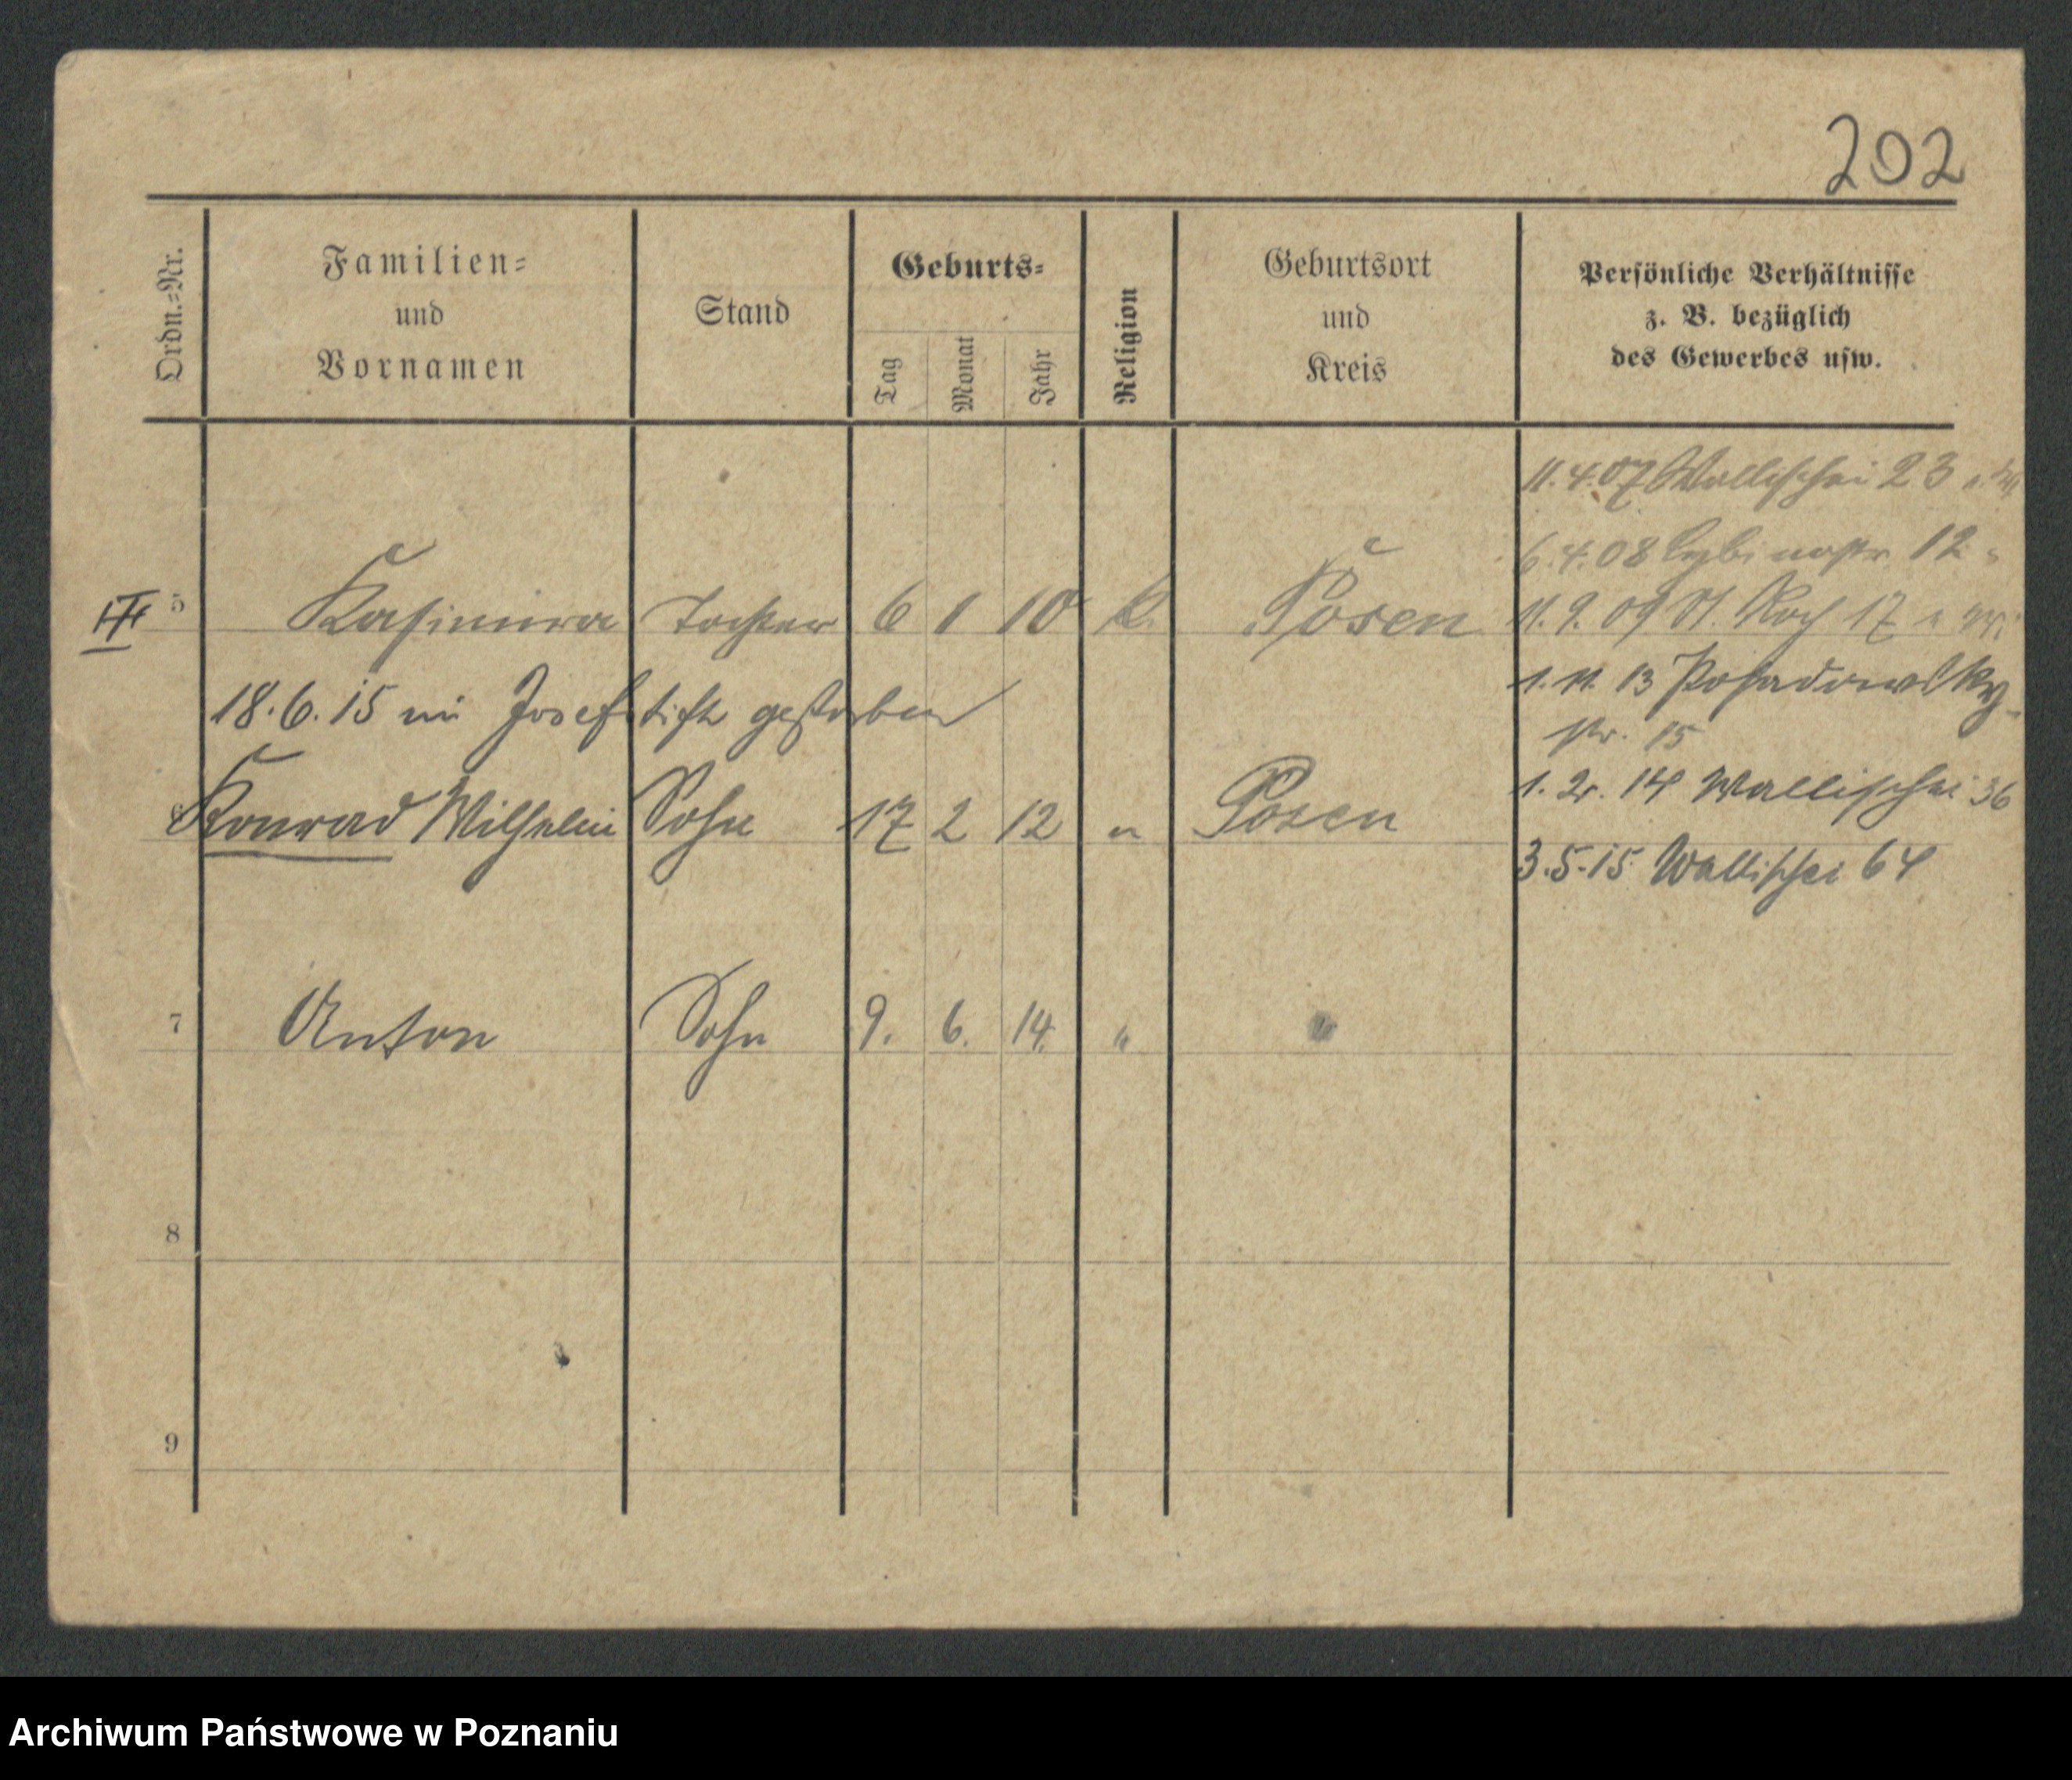 202
Ordn.=Nr.
Familien=
und
Vornamen
Stand
Geburts=
Tag
Monat
Jahr
Religion
Geburtsort
und
Kreis
Persönliche Verhältnisse
z. B. bezüglich
des Gewerbes usw.
11.4.07 Wallischei 23
6.4.08 Cybinastr. 12
III 5 Kasimira Tochter 6 1 10 k. Posen
11.9.09 St. Roch 17
1. 11. 13 Posadowsky-
str. 15
18.6.15 im Josefstift gestorben
1. 2. 14 Wallischei 36
6 Konrad Wilhelm Sohn 17 2 12 " Posen
3.5.15 Wallischei 64
7 Anton Sohn 9. 6. 14. " "
8
9
Archiwum Państwowe w Poznaniu